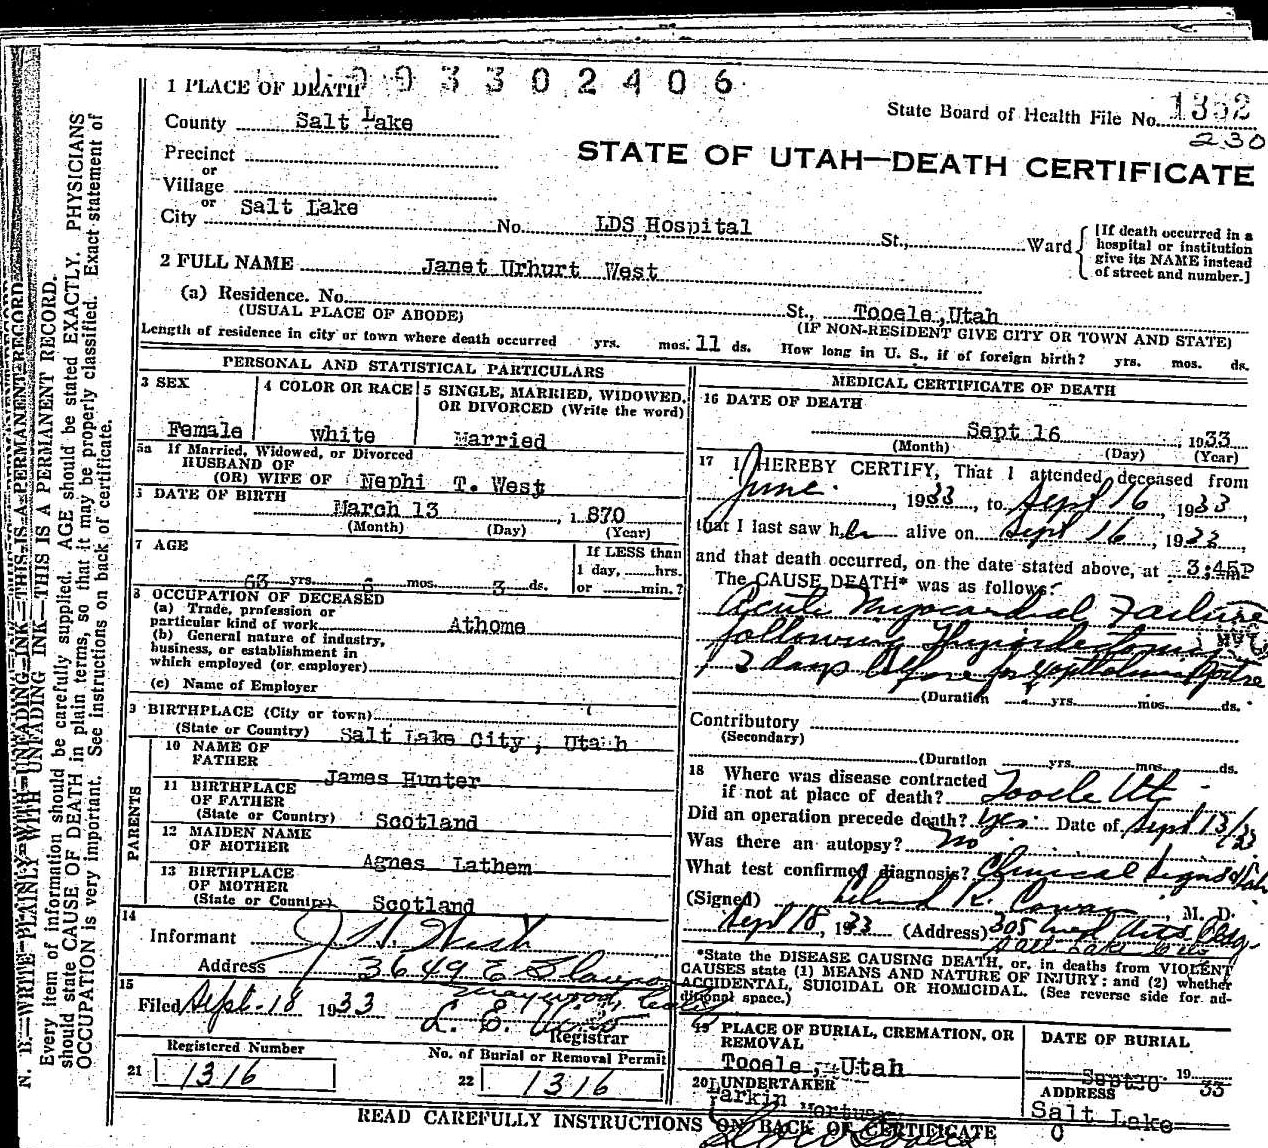 1003302406
1 PLACE OF DEATH
State Board of Health File No. 1352
230
County Salt Lake
STATE OF UTAH—DEATH CERTIFICATE
Precinct
or
Village
or
City Salt Lake No. LDS Hospital St., Ward
[If death occurred in a
hospital or institution
give its NAME instead
of street and number.]
2 FULL NAME Janet Urhurt West
(a) Residence. No. St., Tooele, Utah
(USUAL PLACE OF ABODE) (IF NON-RESIDENT GIVE CITY OR TOWN AND STATE)
Length of residence in city or town where death occurred yrs. mos. 11 ds. How long in U. S., if of foreign birth? yrs. mos. ds.
PERSONAL AND STATISTICAL PARTICULARS
3 SEX
Female
4 COLOR OR RACE
White
5 SINGLE, MARRIED, WIDOWED,
OR DIVORCED (Write the word)
Married
5a If Married, Widowed, or Divorced
HUSBAND OF
(OR) WIFE OF Nephi T. West
DATE OF BIRTH
March 13, 1870
(Month) (Day) (Year)
7 AGE
63 yrs. 6 mos. 3 ds.
If LESS than
1 day, hrs.
or min.?
8 OCCUPATION OF DECEASED
(a) Trade, profession or
particular kind of work Athome
(b) General nature of industry,
business, or establishment in
which employed (or employer)
(c) Name of Employer
9 BIRTHPLACE (City or town)
(State or Country) Salt Lake City, Utah
PARENTS
10 NAME OF
FATHER
James Hunter
11 BIRTHPLACE
OF FATHER
(State or Country) Scotland
12 MAIDEN NAME
OF MOTHER
Agnes Lathem
13 BIRTHPLACE
OF MOTHER
(State or Country) Scotland
14
Informant West
Address 3649 E
15
Filed Sept. 18 1933 L. E.
Registrar
Registered Number
21 1316
No. of Burial or Removal Permit
22 1316
MEDICAL CERTIFICATE OF DEATH
16 DATE OF DEATH
Sept 16, 1933
(Month) (Day) (Year)
17 I HEREBY CERTIFY, That I attended deceased from
June, 1933, to Sept 16, 1933,
that I last saw her alive on Sept 16, 1933,
and that death occurred, on the date stated above, at 3:45P m.
The CAUSE DEATH* was as follows:
Acute Myocardial Failure
following Thyroidectomy
3 days before for Exopthalmic Goitre
(Duration yrs. mos. ds.
Contributory
(Secondary)
(Duration yrs. mos. ds.
18 Where was disease contracted
if not at place of death? Tooele Ut
Did an operation precede death? Yes Date of Sept 13/33
Was there an autopsy? No
What test confirmed diagnosis? Clinical signs &
(Signed) R. Cowan, M. D.
Sept 18, 1933 (Address) 305 Med Arts Bldg.
Salt Lake City
*State the DISEASE CAUSING DEATH, or, in deaths from VIOLENT
CAUSES state (1) MEANS AND NATURE OF INJURY; and (2) whether
ACCIDENTAL, SUICIDAL OR HOMICIDAL. (See reverse side for ad-
ditional space.)
19 PLACE OF BURIAL, CREMATION, OR
REMOVAL
Tooele, Utah
DATE OF BURIAL
Sept20 1933
20 UNDERTAKER
Larkin Mortuary
ADDRESS
Salt Lake
READ CAREFULLY INSTRUCTIONS ON BACK OF CERTIFICATE
N. B.—WRITE PLAINLY WITH UNFADING INK—THIS IS A PERMANENT RECORD.
Every item of information should be carefully supplied. AGE should be stated EXACTLY. PHYSICIANS
should state CAUSE OF DEATH in plain terms, so that it may be properly classified. Exact statement of
OCCUPATION is very important. See instructions on back of certificate.